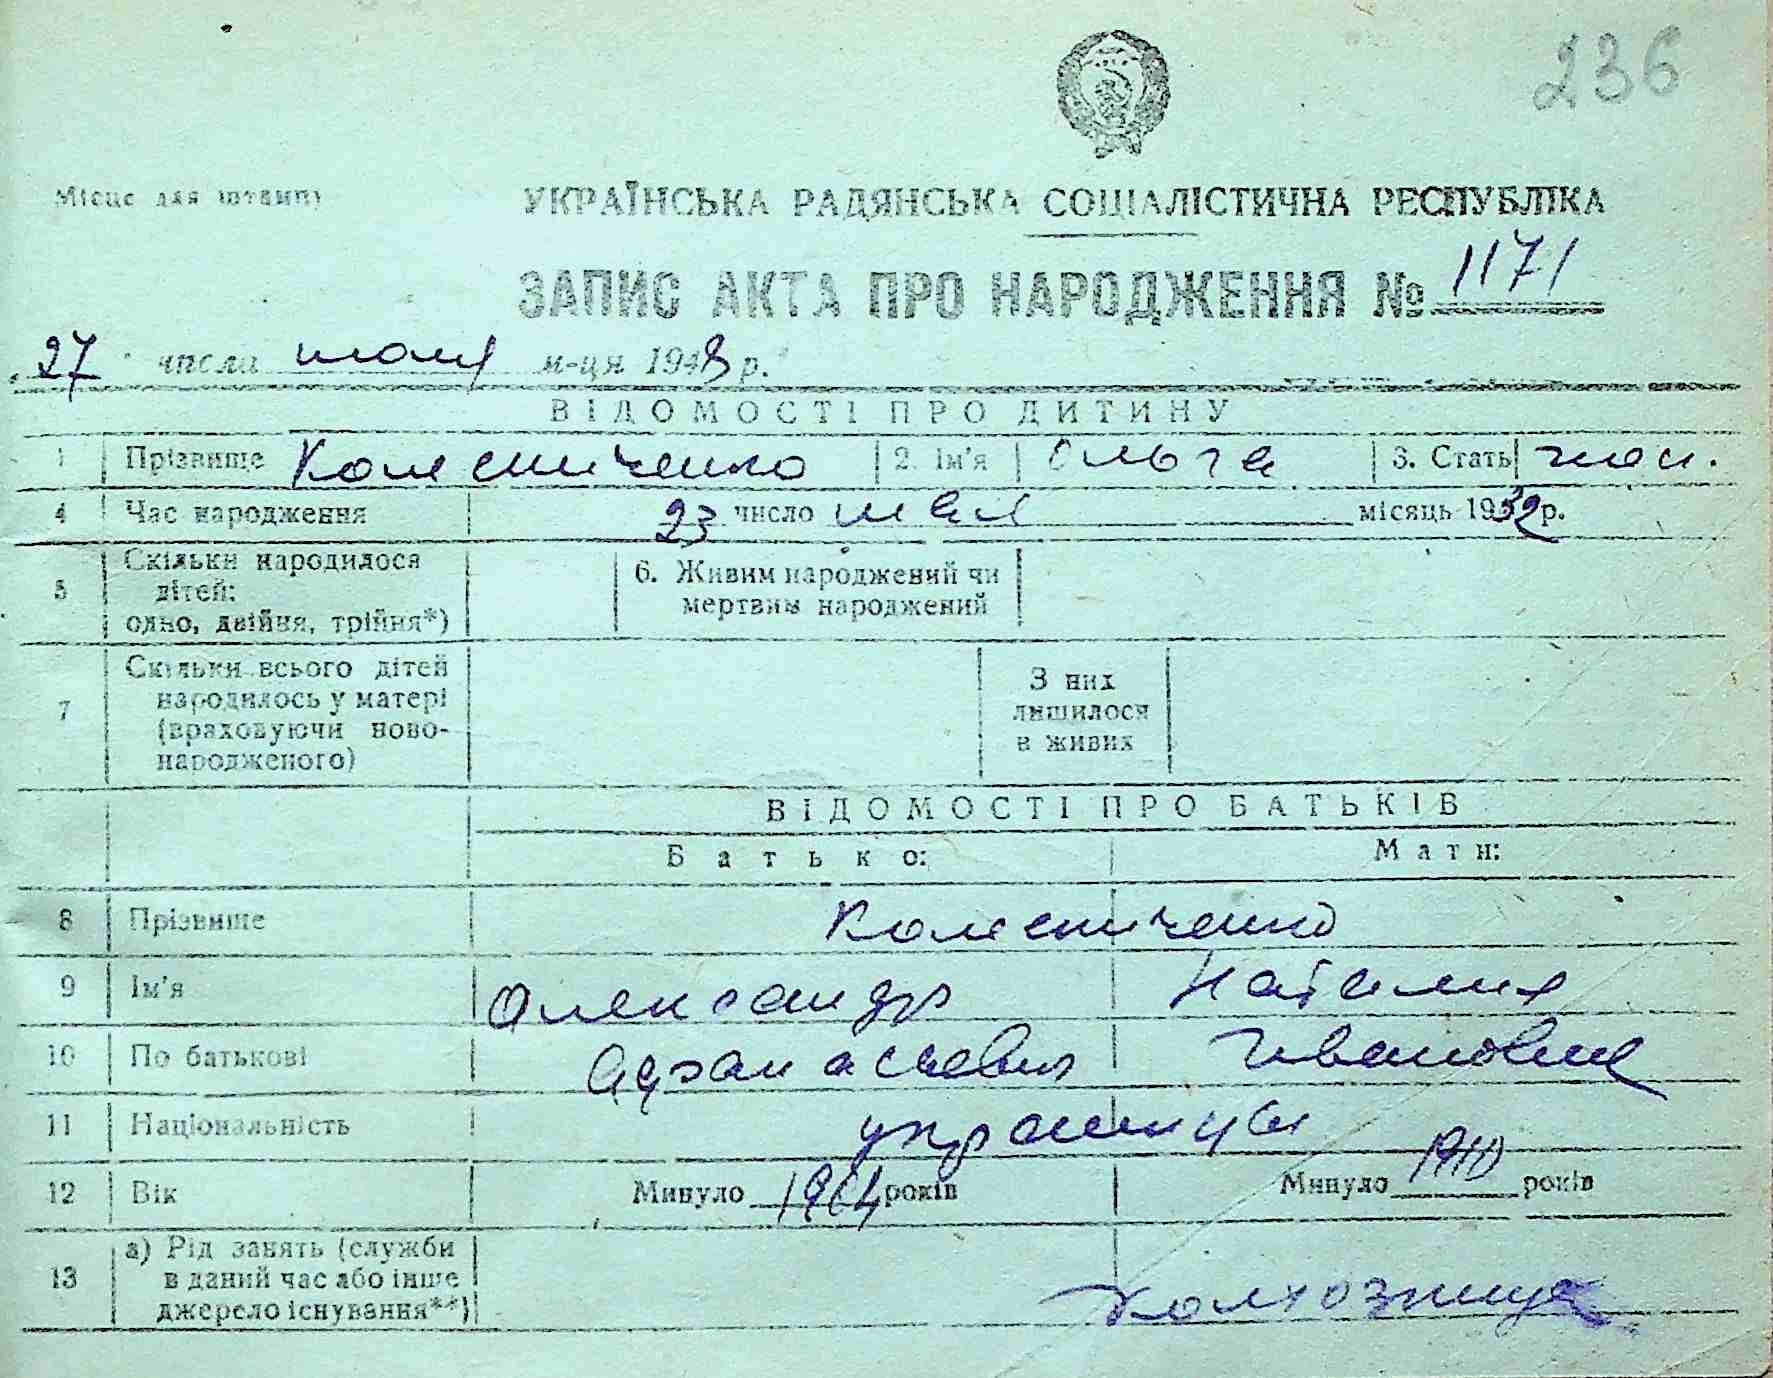 236
Місце для штампу
УКРАЇНСЬКА РАДЯНСЬКА СОЦІАЛІСТИЧНА РЕСПУБЛІКА
ЗАПИС АКТА ПРО НАРОДЖЕННЯ № 1171
27 числа июля м-ця 1948 р.
ВІДОМОСТІ ПРО ДИТИНУ
1 Прізвище Колесниченко 2. Ім'я Ольга 3. Стать жен.
4 Час народження 23 число мая місяць 1932 р.
5 Скільки народилося дітей: одно, двійня, трійня*) 6. Живим народжений чи мертвим народжений
7 Скільки всього дітей народилось у матері (враховуючи новонародженого) З них лишилося в живих
ВІДОМОСТІ ПРО БАТЬКІВ
Батько: Мати:
8 Прізвище Колесниченко
9 Ім'я Александр Наталия
10 По батькові Афанасьевич Ивановна
11 Національність украинцы
12 Вік Минуло 1904 років Минуло 1910 років
13 а) Рід занять (служби в даний час або інше джерело існування**) Колхозница